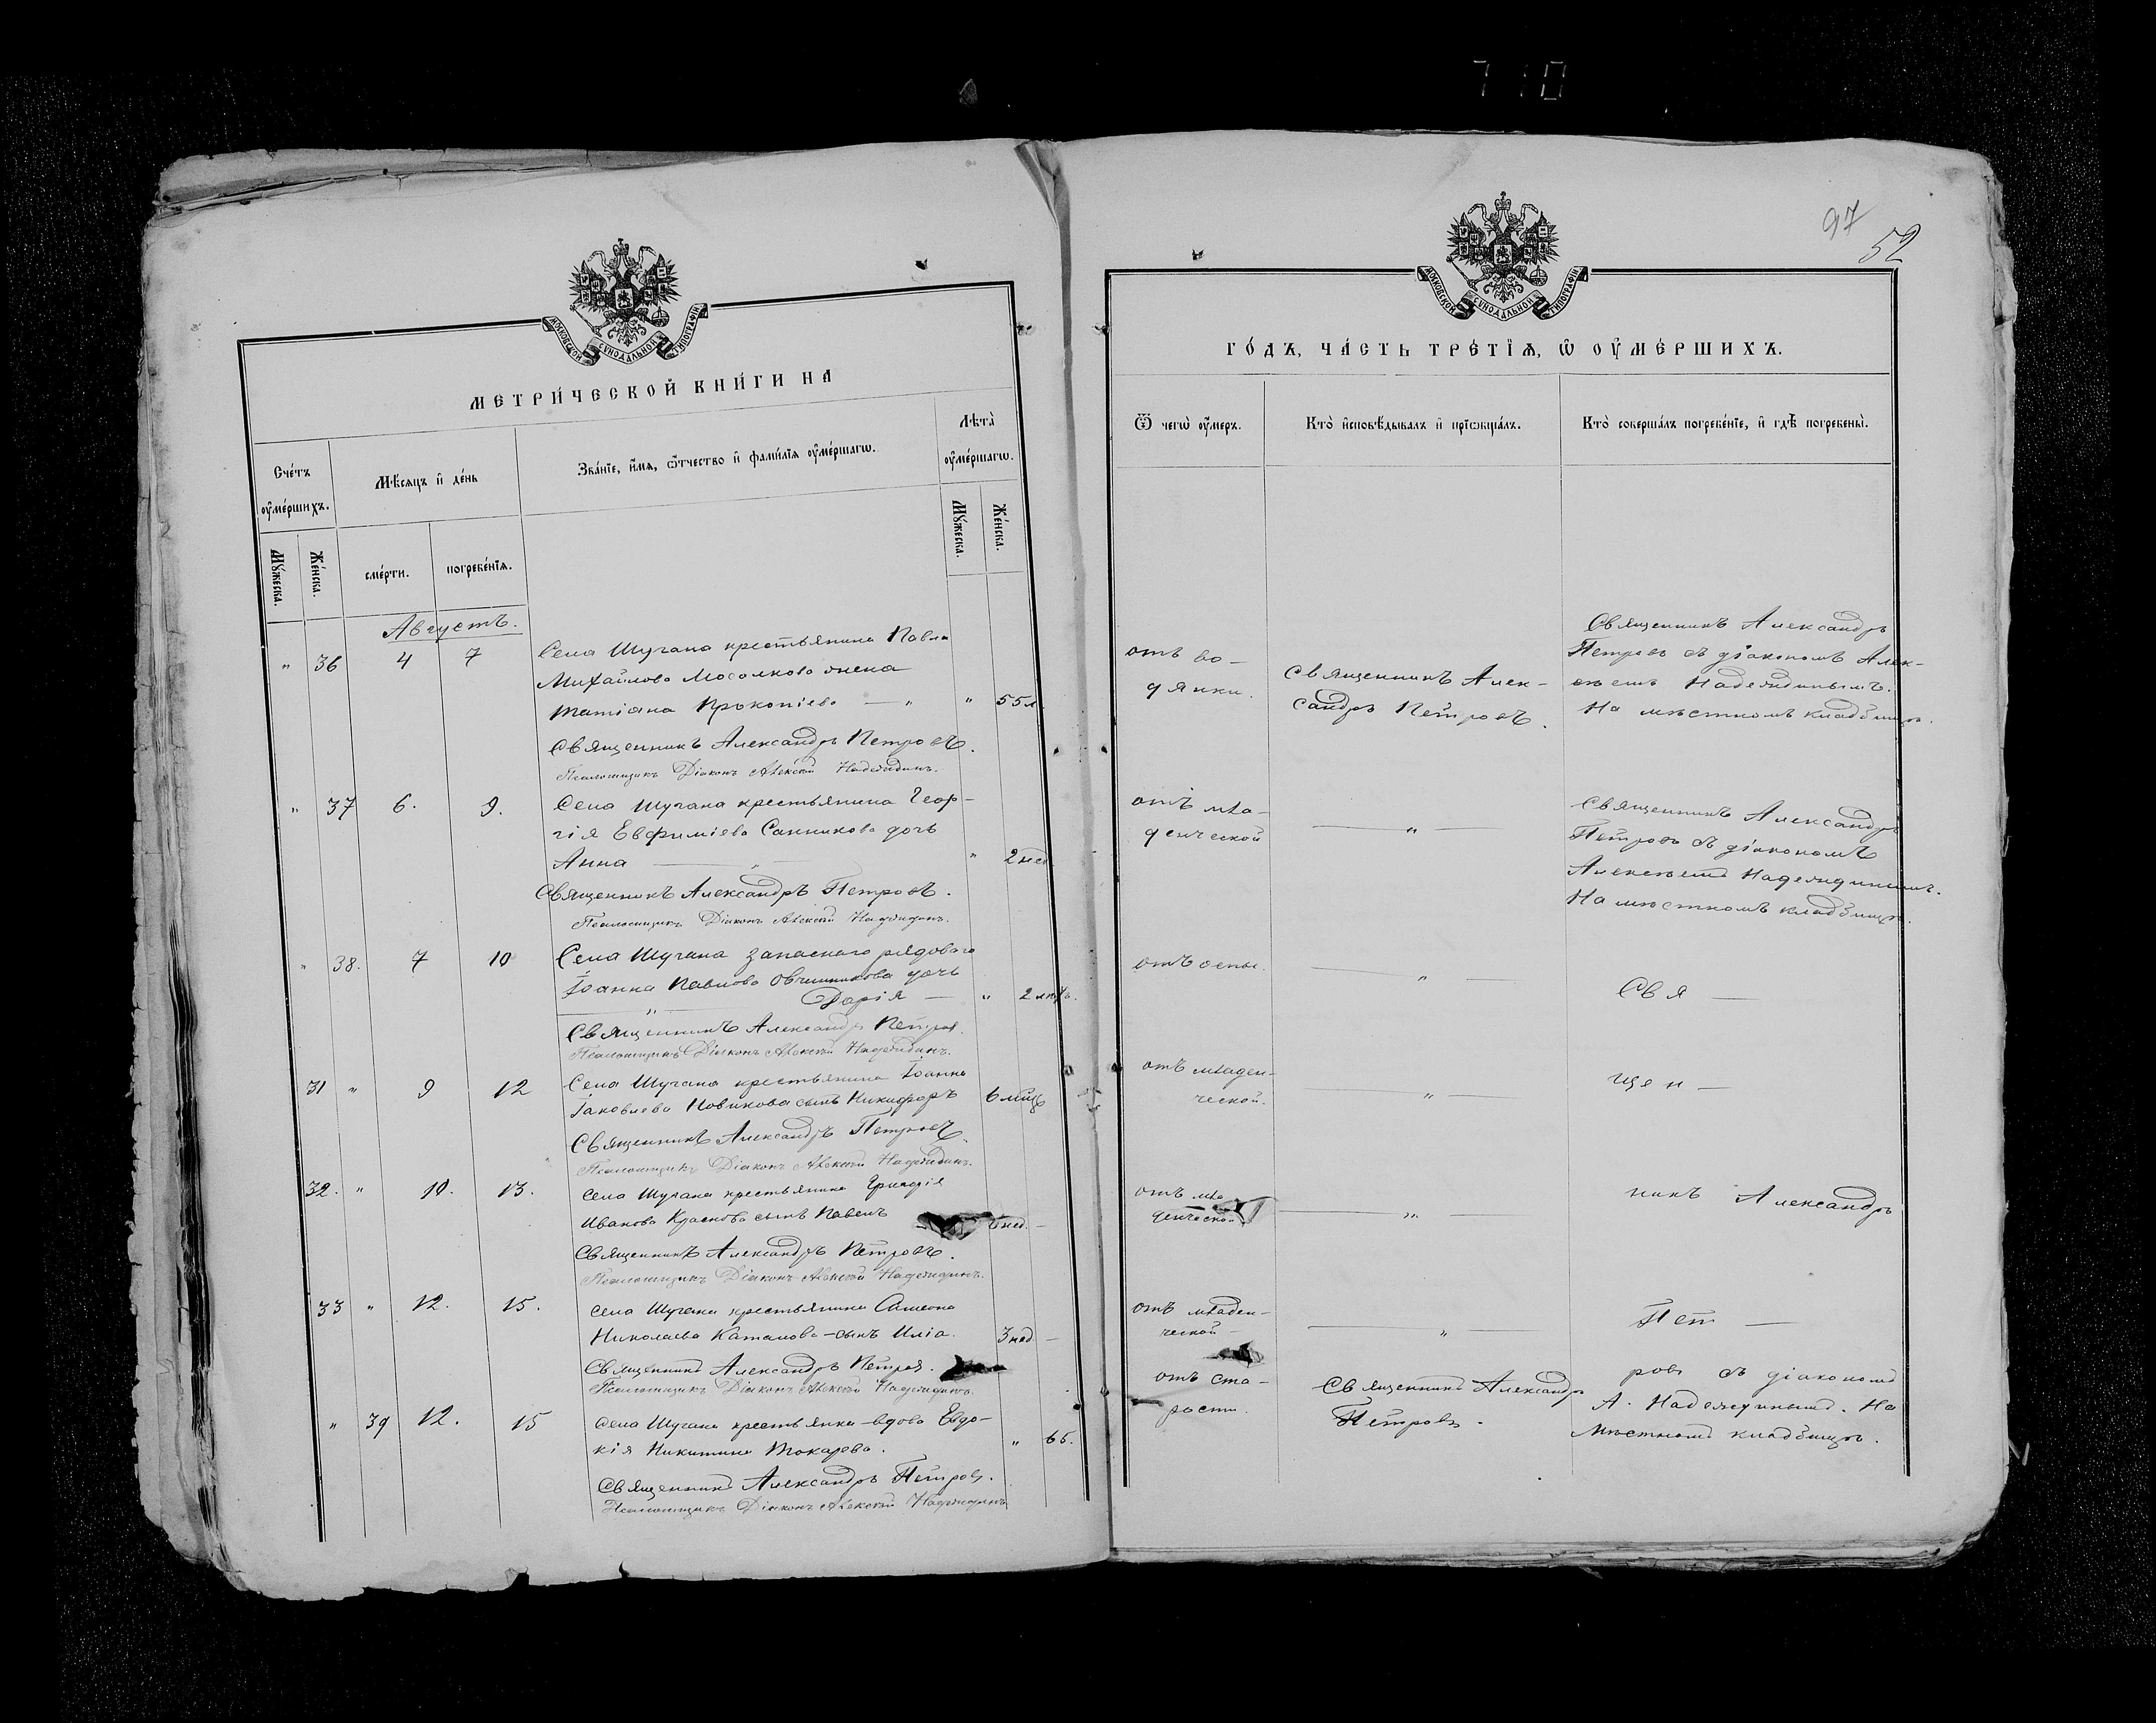 710
97
52
МОСКОВСКОЙ СѴНОДАЛЬНОЙ ТИПОГРАФІИ
МЕТРИ́ЧЕСКОЙ КНИ́ГИ НА
Сче́тъ оу҆ме́ршихъ.
Мѣ́сяцъ и҆ де́нь
Зва́нїе, и҆́мя, ѻ҆́тчество и҆ фами́лїя оу҆ме́ршагѡ.
Лѣта̀ оу҆ме́ршагѡ.
Мꙋ́жеска.
Же́нска.
сме́рти.
погребе́нїя.
Мꙋ́жеска.
Же́нска.
Августъ.
" 36 4 7 Села Шугана крестьянина Павла
Михайлова Мосолкова жена
Татіана Прокопіева — " " 55 л
Священникъ Александръ Петровъ.
Псаломщикъ Діаконъ Алексій Надеждинъ.
" 37 6. 9. Села Шугана крестьянина Геор-
гія Евфиміева Санникова дочь
Анна — " — " 2 нед
Священникъ Александръ Петровъ.
Псаломщикъ Діаконъ Алексій Надеждинъ.
" 38. 7 10 Села Шугана запаснаго рядоваго
Іоанна Павлова Овчинникова дочь
" — Дарія — " 2 лѣтъ.
Священникъ Александръ Петровъ.
Псаломщикъ Діаконъ Алексій Надеждинъ.
31 " 9 12 Села Шугана крестьянина Іоанна
Іаковлева Новикова сынъ Никифоръ 6 мѣц
Священникъ Александръ Петровъ.
Псаломщикъ Діаконъ Алексій Надеждинъ.
32. " 10. 13. Села Шугана крестьянина Григорія
Иванова Краснова сынъ Павелъ нед. —
Священникъ Александръ Петровъ.
Псаломщикъ Діаконъ Алексій Надеждинъ.
33 " 12. 15. Села Шугана крестьянина Симеона
Николаева Каталова — сынъ Илія. 3 нед —
Священникъ Александръ Петровъ.
Псаломщикъ Діаконъ Алексій Надеждинъ.
" 39 12. 15 Села Шугана крестьянка — вдова Евдо-
кія Никитина Токарева. " 65.
Священникъ Александръ Петровъ.
Псаломщикъ Діаконъ Алексій Надеждинъ.
МОСКОВСКОЙ СѴНОДАЛЬНОЙ ТИПОГРАФІИ
ГО́ДЪ, ЧА́СТЬ ТРЕ́ТЇЯ, Ѡ҆ ОУ҆МЕ́РШИХЪ.
Ѿ чегѡ̀ оу҆́меръ.
Кто̀ и҆сповѣ́дывалъ и҆ прїѡбща́лъ.
Кто̀ соверша́лъ погребе́нїе, и҆ гдѣ̀ погребены̀.
отъ во-
дянки.
Священникъ Алек-
сандръ Петровъ.
Священникъ Александръ
Петровъ съ діакономъ Алек-
сѣемъ Надеждинымъ.
На мѣстномъ кладбищѣ.
отъ мла-
денческой
— " —
Священникъ Александръ
Петровъ съ діакономъ
Алексѣемъ Надеждинымъ.
На мѣстномъ кладбищѣ.
отъ оспы.
— " —
Свя —
отъ младен-
ческой.
— " —
щен —
отъ мла
денческой
— " —
никъ Александръ
отъ младен-
ческой —
— " —
Пет —
отъ ста-
рости.
Священникъ Александръ
Петровъ.
ровъ съ діакономъ
А. Надеждинымъ. На
мѣстномъ кладбищѣ.